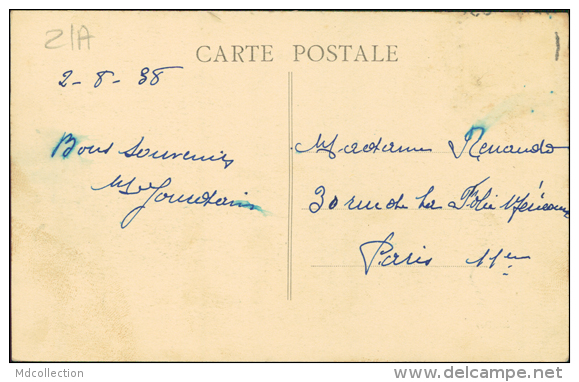 21A
CARTE POSTALE
2-8-38
Bons souvenirs
Jourdain
Madame Renaudo
30 rue de la Folie Méricourt
Paris 11em
Mdcollection
www.delcampe.net